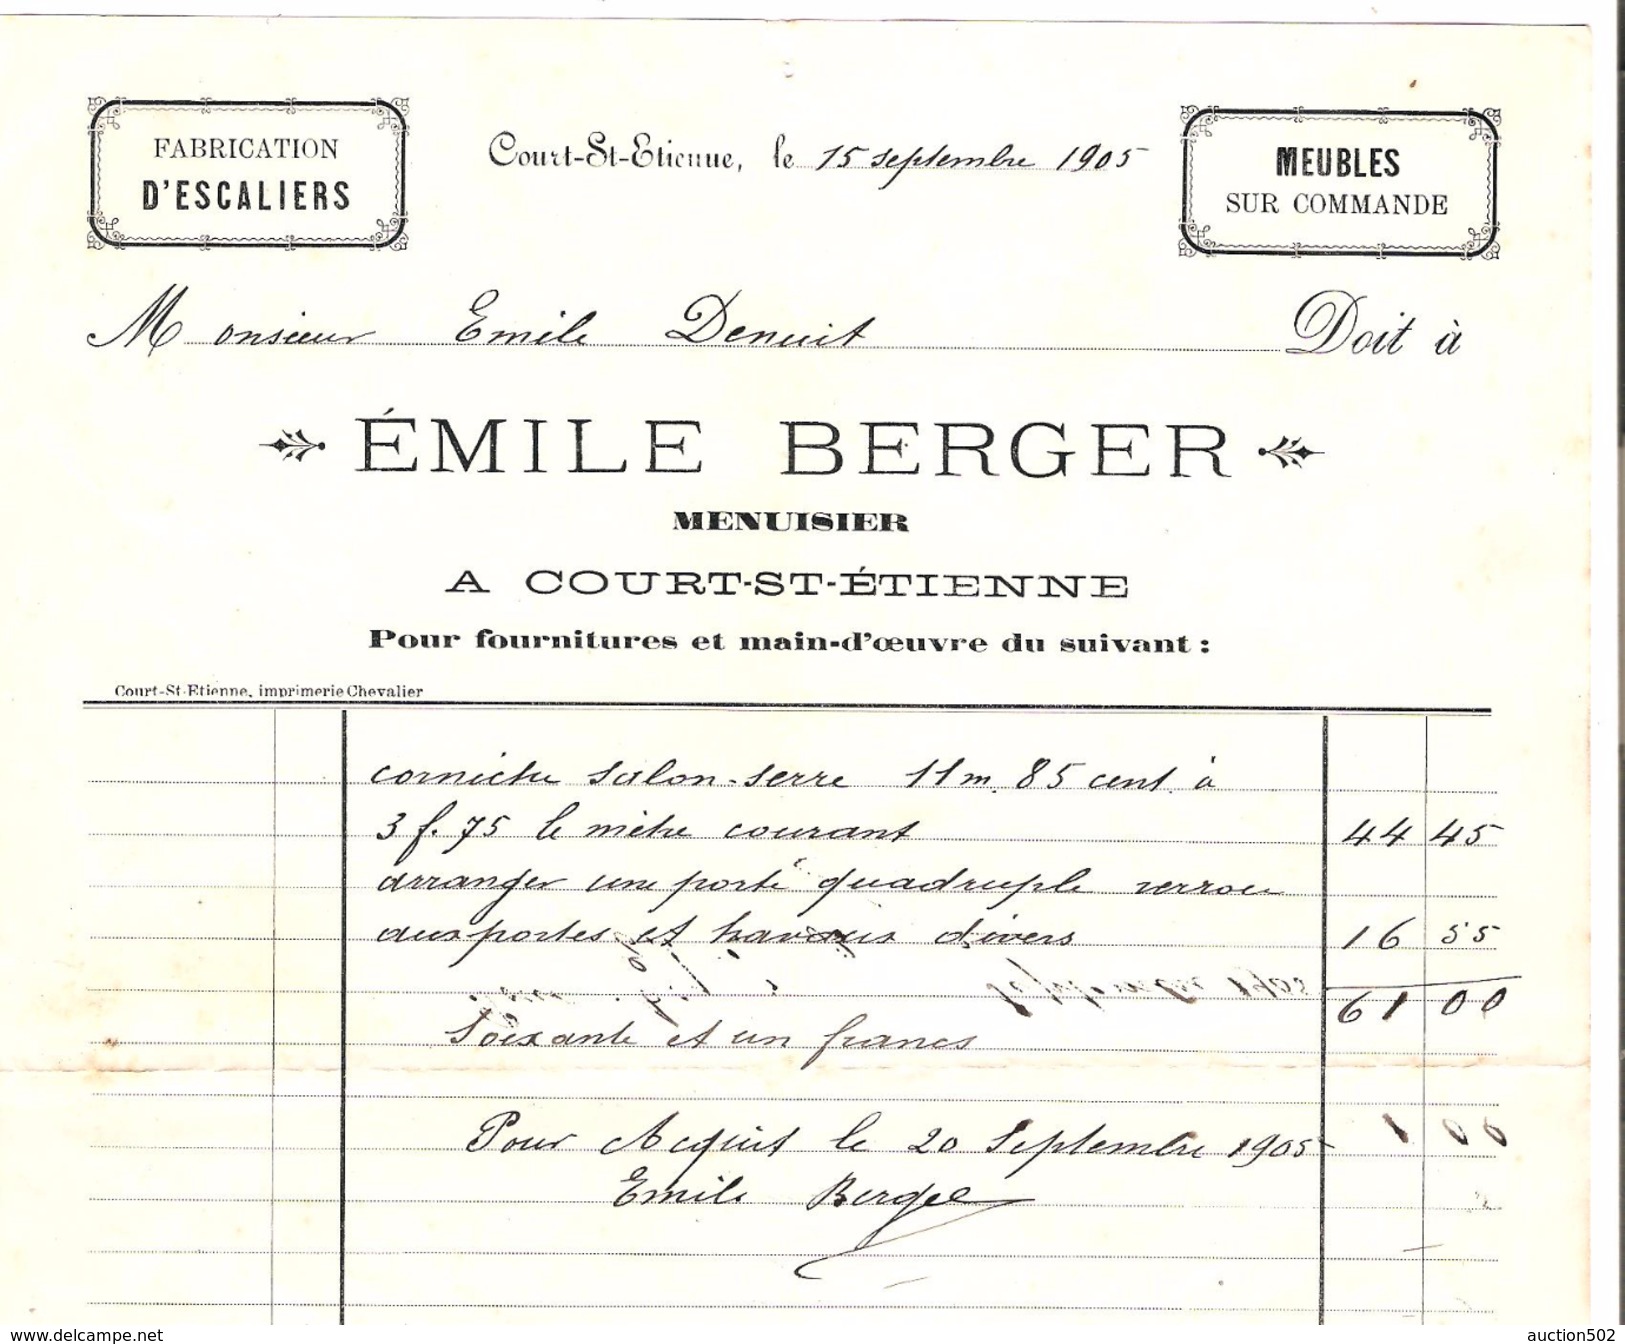 FABRICATION
D'ESCALIERS
Court-St-Etienne, le 15 septembre 1905
MEUBLES
SUR COMMANDE
Monsieur Emile Denuit Doit à
ÉMILE BERGER
MENUISIER
A COURT-ST-ÉTIENNE
Pour fournitures et main-d'œuvre du suivant :
Court-St-Etienne, imprimerie Chevalier
corniche salon-serre 11 m. 85 cent. à
3 f. 75 le mètre courant 44 45
arranger une porte quadruple verrou
aux portes et travaux divers 16 55
61 00
Soixante et un francs
Pour Acquit le 20 Septembre 1905
Emile Berger
www.delcampe.net
auction502